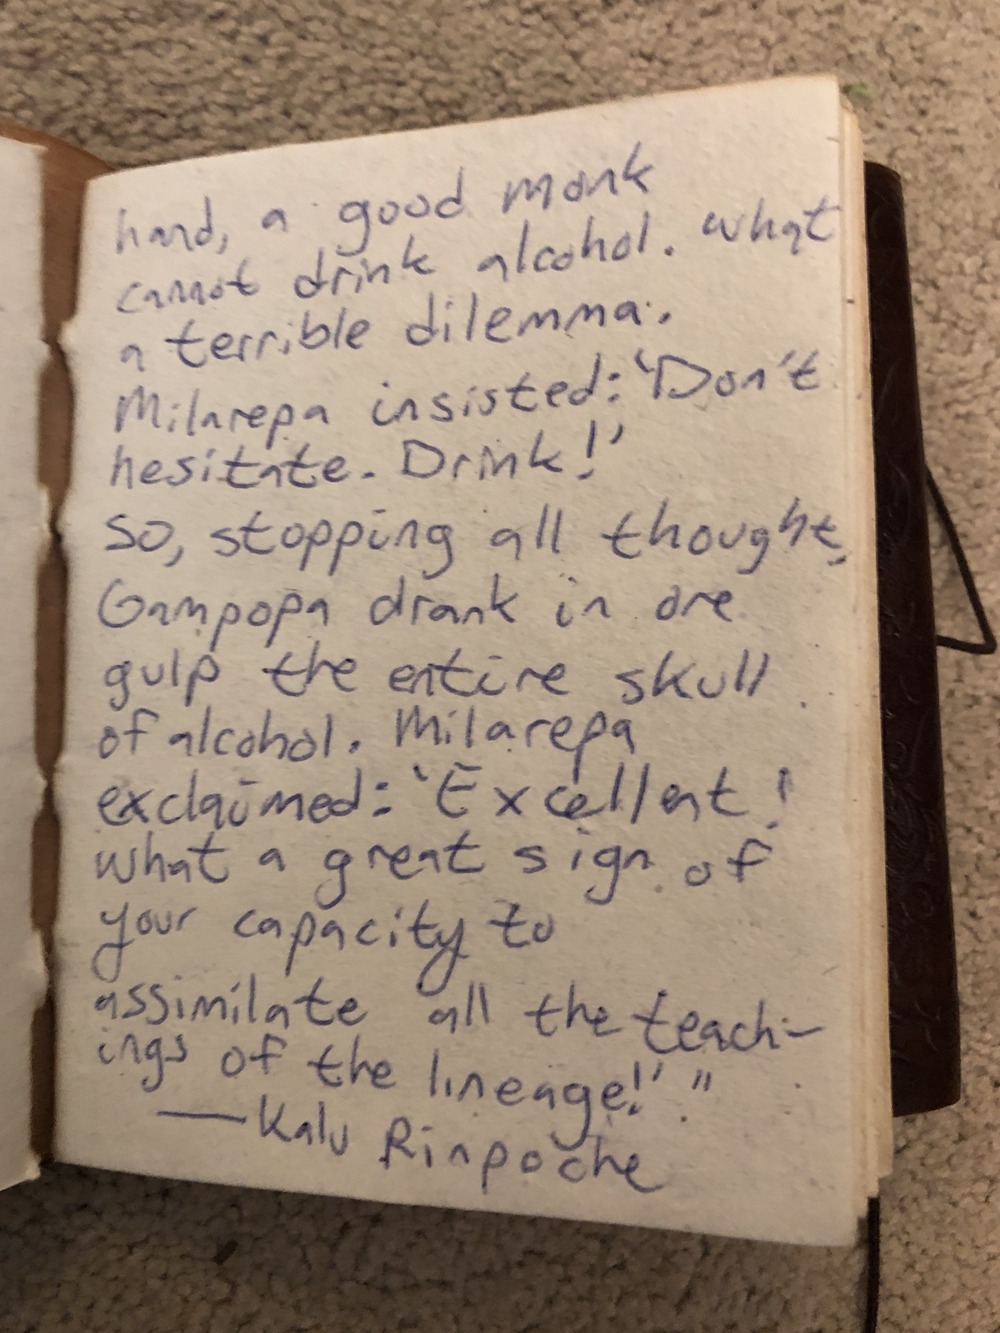 hand, a good monk
cannot drink alcohol. What
a terrible dilemma.
Milarepa insisted: 'Don't
hesitate. Drink!'
So, stopping all thought,
Gampopa drank in one
gulp the entire skull
of alcohol. Milarepa
exclaimed: 'Excellent!
What a great sign of
your capacity to
assimilate all the teach-
ings of the lineage!' "
—Kalu Rinpoche